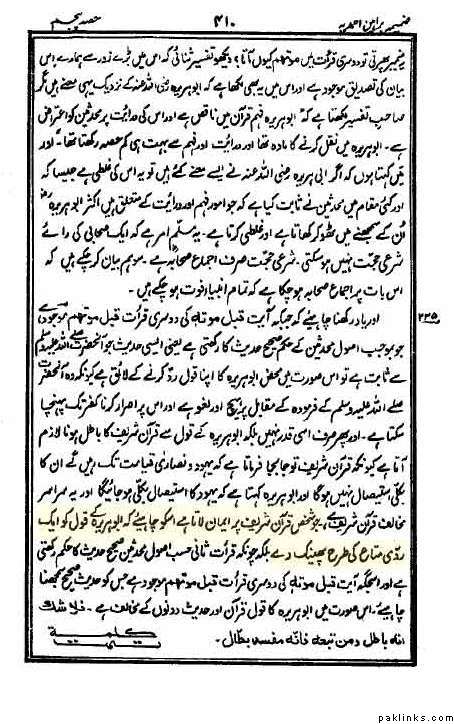 ضمیمہ براہین احمدیہ ۴۱۰ حصہ پنجم
ضمیر پھرتی تو دوسری قرأت میں موتھم کیوں آتا؟ دیکھو تفسیر ثنائی کہ اس میں بڑے زور سے ہمارے اس
بیان کی تصدیق موجود ہے اور اس میں یہ بھی لکھا ہے کہ ابوہریرہ رضی اللہ عنہ کے نزدیک یہی معنے ہیں مگر
صاحب تفسیر لکھتا ہے کہ "ابوہریرہ فہم قرآن میں ناقص ہے اور اس کی درایت پر محدثین کو اعتراض
ہے۔ ابوہریرہ میں نقل کرنے کا مادہ تھا اور درایت اور فہم سے بہت ہی کم حصہ رکھتا تھا" اور
میں کہتا ہوں کہ اگر ابی ہریرہ رضی اللہ عنہ نے ایسے معنے کئے ہیں تو یہ اس کی غلطی ہے جیسا کہ
اور کئی مقام میں محدثین نے ثابت کیا ہے کہ جو امور فہم اور درایت کے متعلق ہیں اکثر ابوہریرہ رضؓ
اُن کے سمجھنے میں ٹھوکر کھاتا ہے اور غلطی کرتا ہے۔ یہ مسلّم امر ہے کہ ایک صحابی کی رائے
شرعی حجت نہیں ہو سکتی۔ شرعی حجت صرف اجماع صحابہؓ ہے۔ سو ہم بیان کر چکے ہیں کہ
اس بات پر اجماع صحابہ ہو چکا ہے کہ تمام انبیاء فوت ہو چکے ہیں۔
اور یاد رکھنا چاہیئے کہ جبکہ آیت قبل موتہٖ کی دوسری قرأت قبل موتھم موجود ہے
۲۳۵
جو بموجب اصول محدثین کے حکم صحیح حدیث کا رکھتی ہے یعنی ایسی حدیث جو آنحضرت صلے اللہ علیہ وسلم
سے ثابت ہے تو اس صورت میں محض ابوہریرہ کا اپنا قول ردّ کرنے کے لائق ہے کیونکہ وہ آنحضرت
صلے اللہ علیہ وسلم کے فرمودہ کے مقابل پر ہیچ اور لغو ہے اور اس پر اصرار کرنا کفر تک پہنچا
سکتا ہے۔ اور پھر صرف اسی قدر نہیں بلکہ ابوہریرہ کے قول سے قرآن شریف کا باطل ہونا لازم
آتا ہے کیونکہ قرآن شریف تو جابجا فرماتا ہے کہ یہود و نصاریٰ قیامت تک رہیں گے اُن کا
بکلّی استیصال نہیں ہوگا اور ابوہریرہ کہتا ہے کہ یہود کا استیصال بکلّی ہو جائیگا اور یہ سراسر
مخالف قرآن شریف ہے۔ جو شخص قرآن شریف پر ایمان لاتا ہے اسکو چاہیئے کہ ابوہریرہ کے قول کو ایک
ردّی متاع کی طرح پھینک دے بلکہ چونکہ قرأت ثانی حسب اصول محدثین صحیح حدیث کا حکم رکھتی
ہے اور اسجگہ آیت قبل موتہٖ کی دوسری قرأت قبل موتھم موجود ہے جس کو حدیث صحیح سمجھنا
چاہیئے۔ اس صورت میں ابوہریرہ کا قول قرآن اور حدیث دونوں کے مخالف ہے۔ فلا شک
انہ باطل و من تبعہ فانہ مفسد بطّال۔
paklinks.com